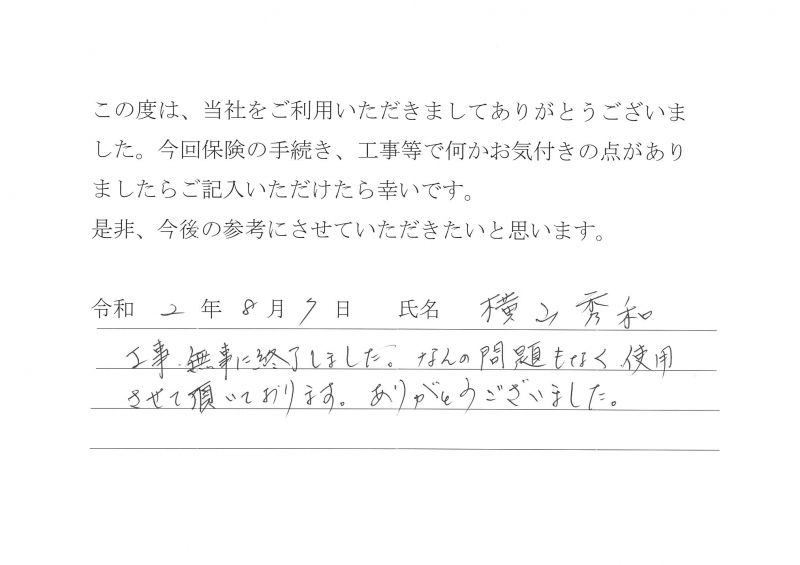 この度は、当社をご利用いただきましてありがとうございま
した。今回保険の手続き、工事等で何かお気付きの点があり
ましたらご記入いただけたら幸いです。
是非、今後の参考にさせていただきたいと思います。
令和 2 年 8 月 7 日 氏名 横山秀和
工事、無事に終了しました。なんの問題もなく使用
させて頂いております。ありがとうございました。